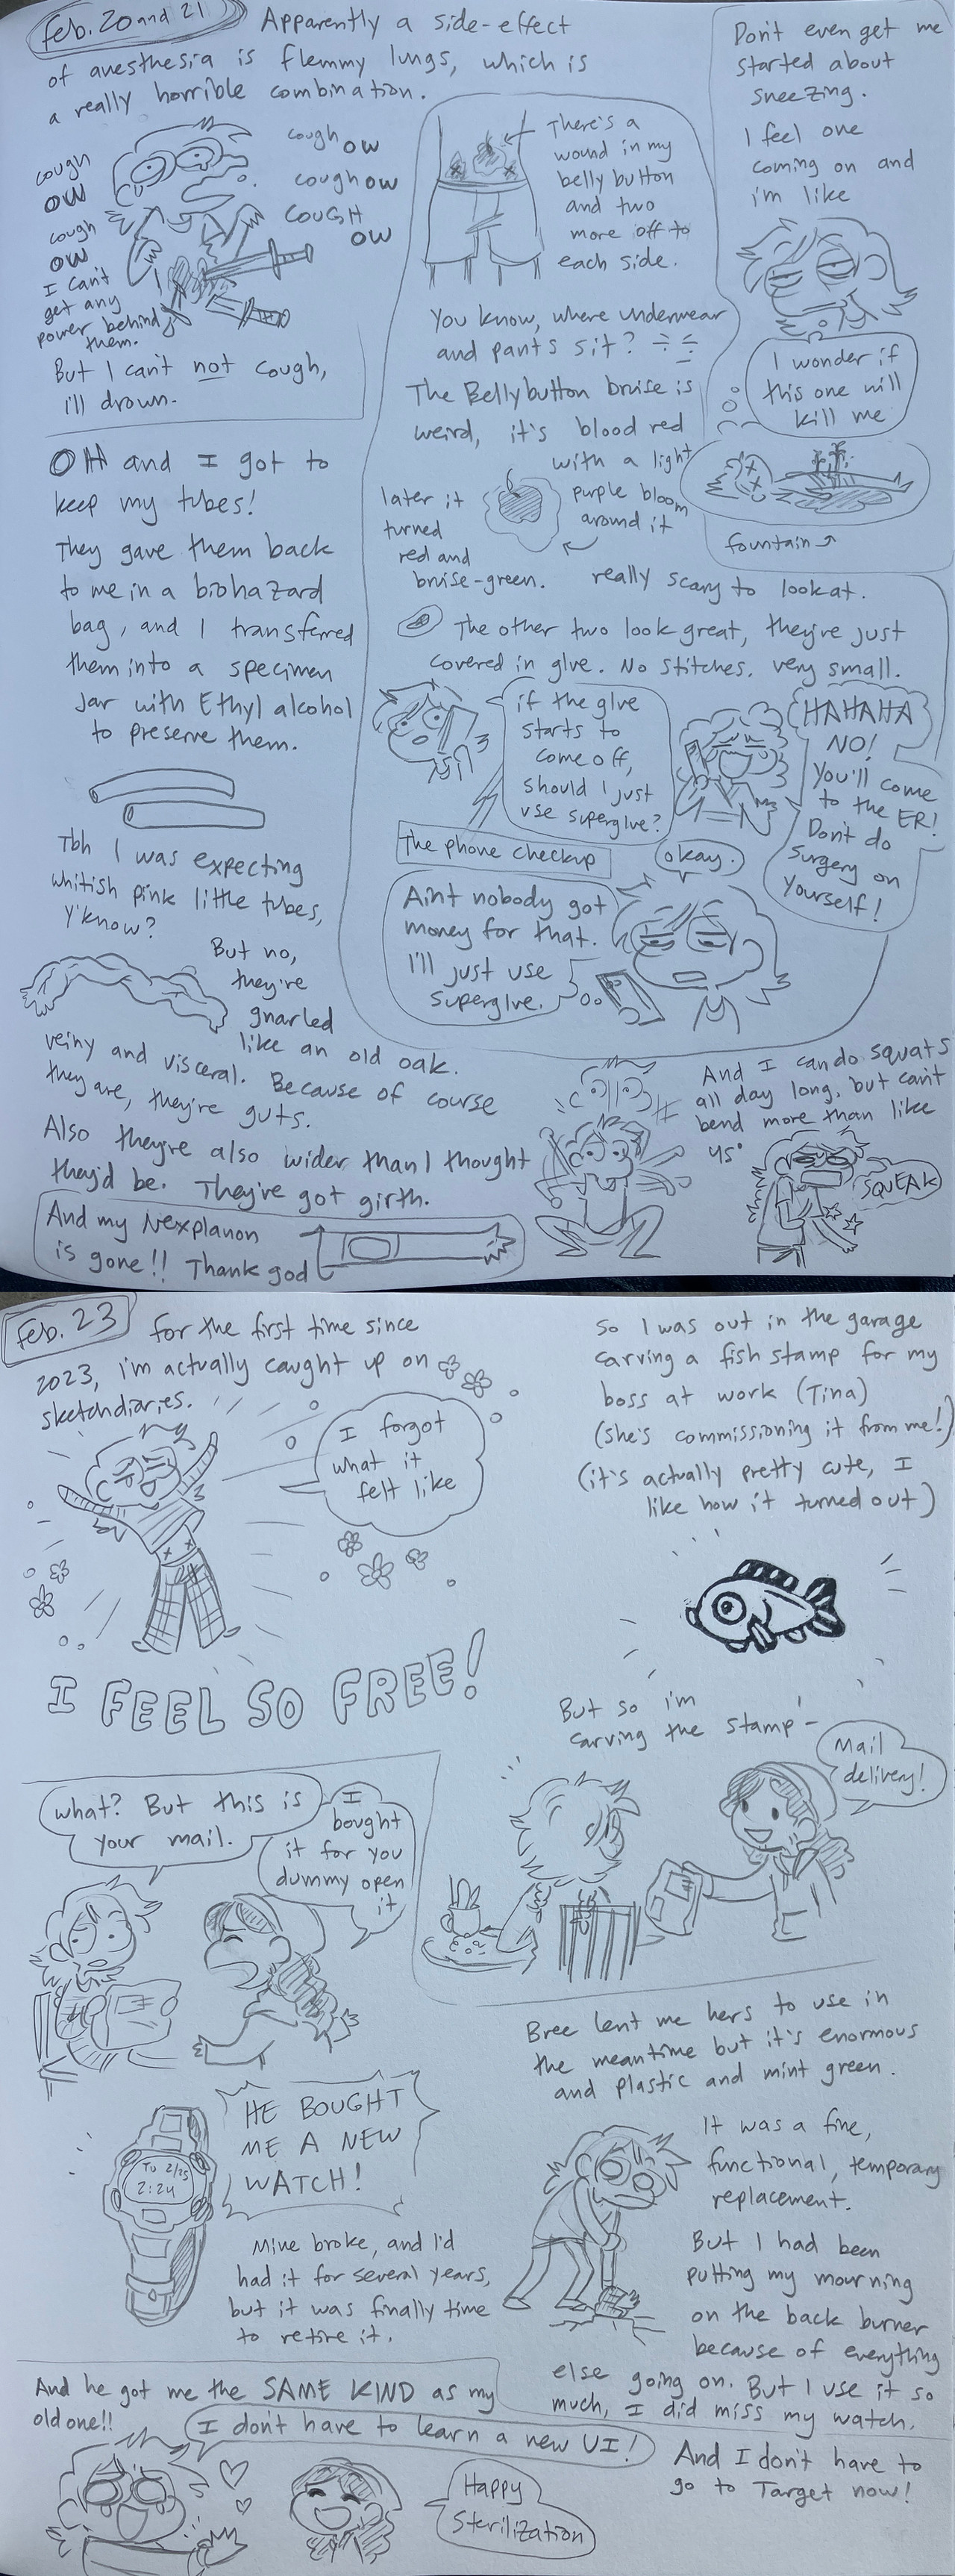 Feb. 20 and 21
Apparently a side-effect
of anesthesia is flemmy lungs, which is
a really horrible combination.
cough
OW
cough
OW
I can't
get any
power behind
them.
cough OW
cough OW
COUGH
OW
But I can't not cough,
i'll drown.
OH and I got to
keep my tubes!
They gave them back
to me in a biohazard
bag, and I transferred
them into a specimen
jar with Ethyl alcohol
to preserve them.
Tbh I was expecting
whitish pink little tubes,
y'know?
But no,
they're
gnarled
like an old oak.
veiny and visceral. Because of course
they are, they're guts.
Also they're also wider than I thought
they'd be. They've got girth.
And my Nexplanon
is gone!! Thank god
There's a
wound in my
belly button
and two
more off to
each side.
You know, where underwear
and pants sit?
The Bellybutton bruise is
weird, it's blood red
with a light
purple bloom
around it
later it
turned
red and
bruise-green.
really scary to look at.
The other two look great, they're just
covered in glue. No stitches. very small.
if the glue
starts to
come off,
should I just
use superglue?
HAHAHA
NO!
You'll come
to the ER!
Don't do
surgery on
yourself!
The phone checkup
okay.
Aint nobody got
money for that.
I'll just use
superglue.
Don't even get me
started about
sneezing.
I feel one
coming on and
i'm like
I wonder if
this one will
kill me
fountain
And I can do squats
all day long, but can't
bend more than like
45°
SQUEAK
Feb. 23
for the first time since
2023, i'm actually caught up on
sketchdiaries.
I forgot
what it
felt like
I FEEL SO FREE!
So I was out in the garage
carving a fish stamp for my
boss at work (Tina)
(she's commissioning it from me!)
(it's actually pretty cute, I
like how it turned out)
But so i'm
carving the stamp-
Mail
delivery!
what? But this is
your mail.
I
bought
it for you
dummy open
it
HE BOUGHT
ME A NEW
WATCH!
TU 2/25
2:24
Mine broke, and I'd
had it for several years,
but it was finally time
to retire it.
Bree lent me hers to use in
the meantime but it's enormous
and plastic and mint green.
It was a fine,
functional, temporary
replacement.
But I had been
putting my mourning
on the back burner
because of everything
else going on. But I use it so
much, I did miss my watch.
And he got me the SAME KIND as my
old one!!
I don't have to learn a new UI!
Happy
Sterilization
And I don't have to
go to Target now!